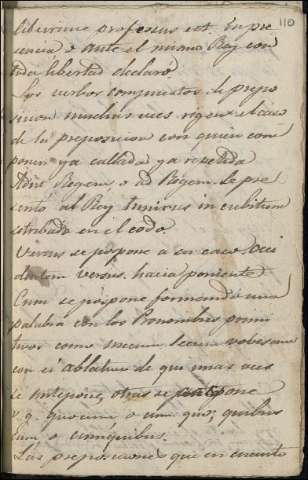 110
liberrime professus est. En pre
sencia o ante el mismo Rey con
toda libertad declaró
Los verbos compuestos de prepo
sicion muchas veces rigen el caso
de la preposicion con quien com
ponen ya callada ya repetida
Adire Regem, o ad Regem se pre
sentó al Rey Innixus in cubitum
estribado en el codo.
Versus se pospone a su caso, occi
dentem versus. hacia poniente
Cum se pospone formando una
palabra con los Pronombres primi
tivos como mecum, tecum vobiscum
con el ablativo de qui unas veces
se antepone, otras se pospone
v. g. quocum o cum quo; quibus
cum o cum quibus.
Las preposiciones que en cuanto